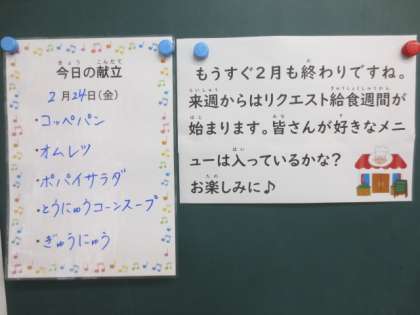 今日の献立
2月24日(金)
・コッペパン
・オムレツ
・ポパイサラダ
・とうにゅうコーンスープ
・ぎゅうにゅう
もうすぐ2月も終わりですね。
来週からはリクエスト給食週間が
始まります。皆さんが好きなメニ
ューは入っているかな?
お楽しみに♪